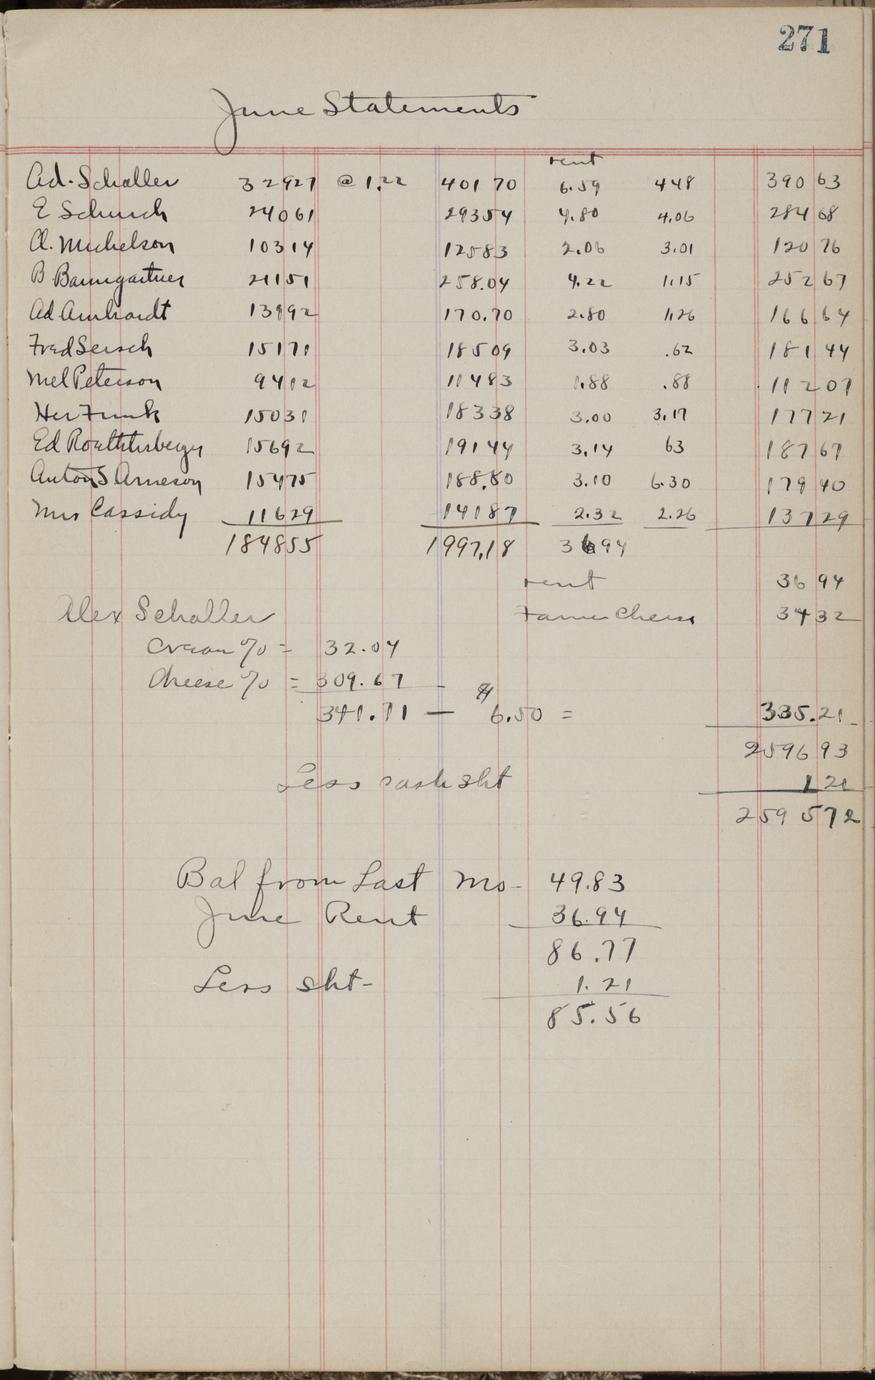 271
June Statements
rent
Ad. Schaller 32927 @ 1.22 401 70 6.59 448 390 63
E Schurch 24061 293 54 4.80 4.06 284 68
A. Michelson 10314 125 83 2.06 3.01 120 76
B Baumgartner 21151 258.04 4.22 1.15 252 67
Ad Amhardt 13992 170.70 2.80 1.26 166 64
Fred Sersch 15171 185 09 3.03 .62 181 44
Mel Peterson 9412 114 83 1.88 .88 112 07
Her Funk 15031 183 38 3.00 3.17 177 21
Ed 15692 191 44 3.14 63 187 67
Anton S Arneson 15475 188.80 3.10 6.30 179 40
Mrs Cassidy 11629 141 87 2.32 2.26 137 29
184855 1997.18 36 94
rent 36 94
Alex Schaller Farmer Cheese 34 32
Cream % = 32.04
Cheese % = 309.67
341.71 — $ 6.50 = 335.21
2596 93
Less cash sht 1 21
2595 72
Bal from Last Mo - 49.83
June Rent 36.94
86.77
Less sht - 1.21
85.56